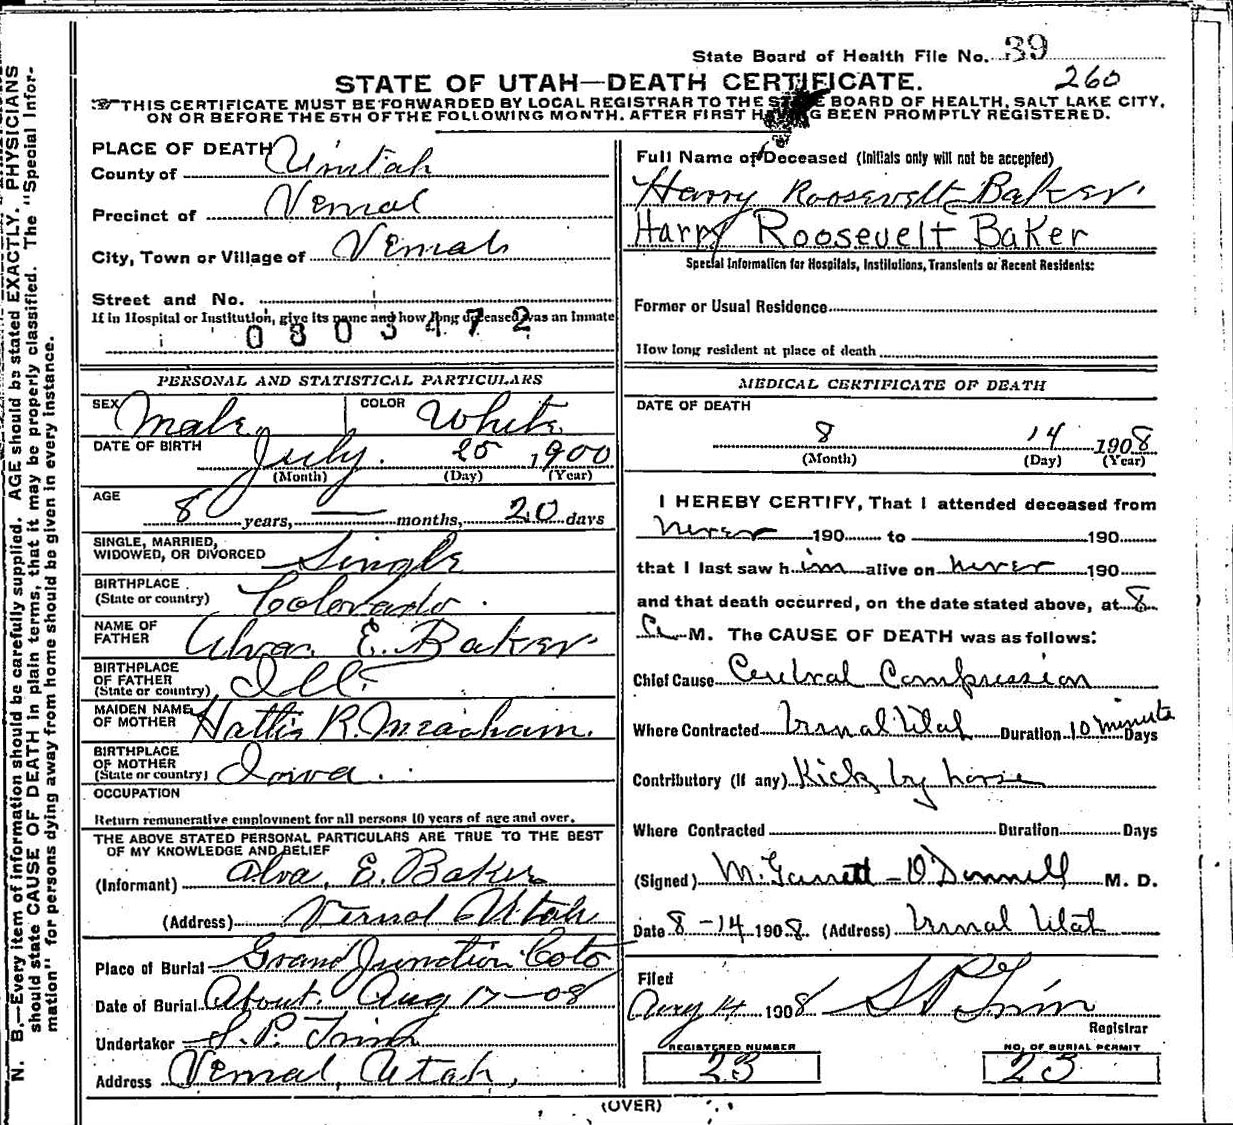 State Board of Health File No. 39
260
STATE OF UTAH—DEATH CERTIFICATE.
THIS CERTIFICATE MUST BE FORWARDED BY LOCAL REGISTRAR TO THE STATE BOARD OF HEALTH, SALT LAKE CITY,
ON OR BEFORE THE 5TH OF THE FOLLOWING MONTH. AFTER FIRST HAVING BEEN PROMPTLY REGISTERED.
N. B.—Every item of information should be carefully supplied. AGE should be stated EXACTLY. PHYSICIANS
should state CAUSE OF DEATH in plain terms, that it may be properly classified. The "Special Infor-
mation" for persons dying away from home should be given in every instance.
PLACE OF DEATH
County of Uintah
Precinct of Vernal
City, Town or Village of Vernal
Street and No.
If in Hospital or Institution, give its name and how long deceased was an Inmate
0803472
PERSONAL AND STATISTICAL PARTICULARS
SEX Male COLOR White
DATE OF BIRTH July. 25 1900
(Month) (Day) (Year)
AGE
8 years, — months, 20 days
SINGLE, MARRIED,
WIDOWED, OR DIVORCED Single
BIRTHPLACE
(State or country) Colorado.
NAME OF
FATHER Alva. E. Baker
BIRTHPLACE
OF FATHER
(State or country) Ill.
MAIDEN NAME
OF MOTHER Hattie R. Meacham.
BIRTHPLACE
OF MOTHER
(State or country) Iowa.
OCCUPATION
Return remunerative employment for all persons 10 years of age and over.
THE ABOVE STATED PERSONAL PARTICULARS ARE TRUE TO THE BEST
OF MY KNOWLEDGE AND BELIEF
(Informant) Alva. E. Baker
(Address) Vernal Utah
Place of Burial Grand Junction Colo
Date of Burial About. Aug 17-08
Undertaker S. P. Trim
Address Vernal, Utah,
Full Name of Deceased (Initials only will not be accepted)
Harry Roosevelt Baker.
Harry Roosevelt Baker
Special Information for Hospitals, Institutions, Transients or Recent Residents:
Former or Usual Residence
How long resident at place of death
MEDICAL CERTIFICATE OF DEATH
DATE OF DEATH
8 14 1908
(Month) (Day) (Year)
I HEREBY CERTIFY, That I attended deceased from
never 190 to 190
that I last saw him alive on never 190
and that death occurred, on the date stated above, at 8
A M. The CAUSE OF DEATH was as follows:
Chief Cause Cerebral Compression
Where Contracted Vernal Utah Duration 10 minute Days
Contributory (If any) Kick by horse
Where Contracted Duration Days
(Signed) M. Garrett-O'Donnell M. D.
Date 8-14 1908. (Address) Vernal Utah
Filed
Aug 14 1908 S P Trim
Registrar
REGISTERED NUMBER NO. OF BURIAL PERMIT
23 23
(OVER)